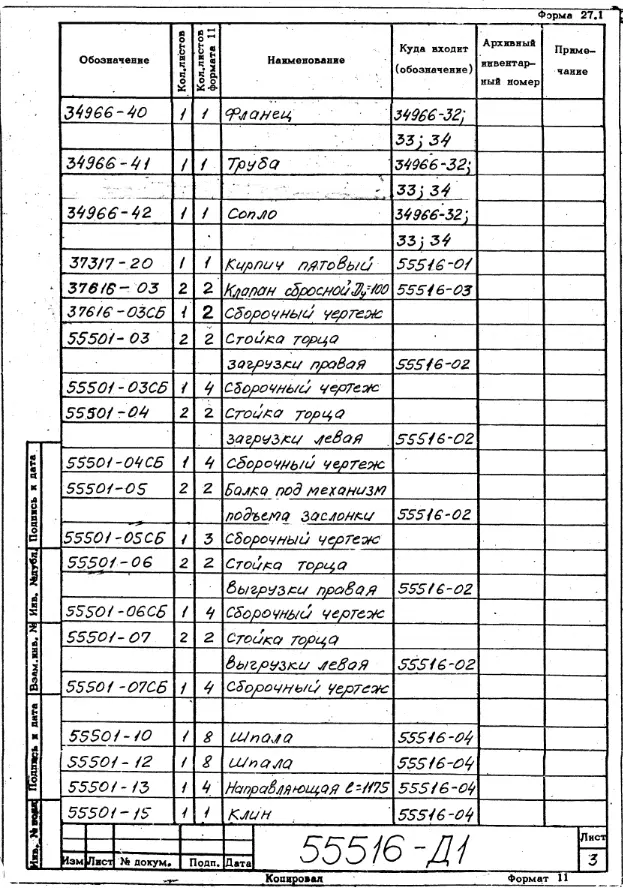 Форма 27.1
Обозначение Кол.листов Кол.листов формата 11 Наименование Куда входит (обозначение) Архивный инвентар-ный номер Приме-чание
34966-40 1 1 Фланец 34966-32;
33; 34
34966-41 1 1 Труба 34966-32;
33; 34
34966-42 1 1 Сопло 34966-32;
33; 34
37317-20 1 1 Кирпич пятовый 55516-01
37616-03 2 2 Клапан сбросной Ду=100 55516-03
37616-03СБ 1 2 Сборочный чертеж
55501-03 2 2 Стойка торца
загрузки правая 55516-02
55501-03СБ 1 4 Сборочный чертеж
55501-04 2 2 Стойка торца
загрузки левая 55516-02
55501-04СБ 1 4 Сборочный чертеж
55501-05 2 2 Балка под механизм
подъема заслонки 55516-02
55501-05СБ 1 3 Сборочный чертеж
55501-06 2 2 Стойка торца
выгрузки правая 55516-02
55501-06СБ 1 4 Сборочный чертеж
55501-07 2 2 Стойка торца
выгрузки левая 55516-02
55501-07СБ 1 4 Сборочный чертеж
55501-10 1 8 Шпала 55516-04
55501-12 1 8 Шпала 55516-04
55501-13 1 4 Направляющая ℓ=1175 55516-04
55501-15 1 1 Клин 55516-04
Подпись и дата
Инв. №дубл.
Взам.инв. №
Подпись и дата
Инв. №подл
Изм Лист № докум. Подп. Дата
55516-Д1
Лист
3
Копировал Формат 11